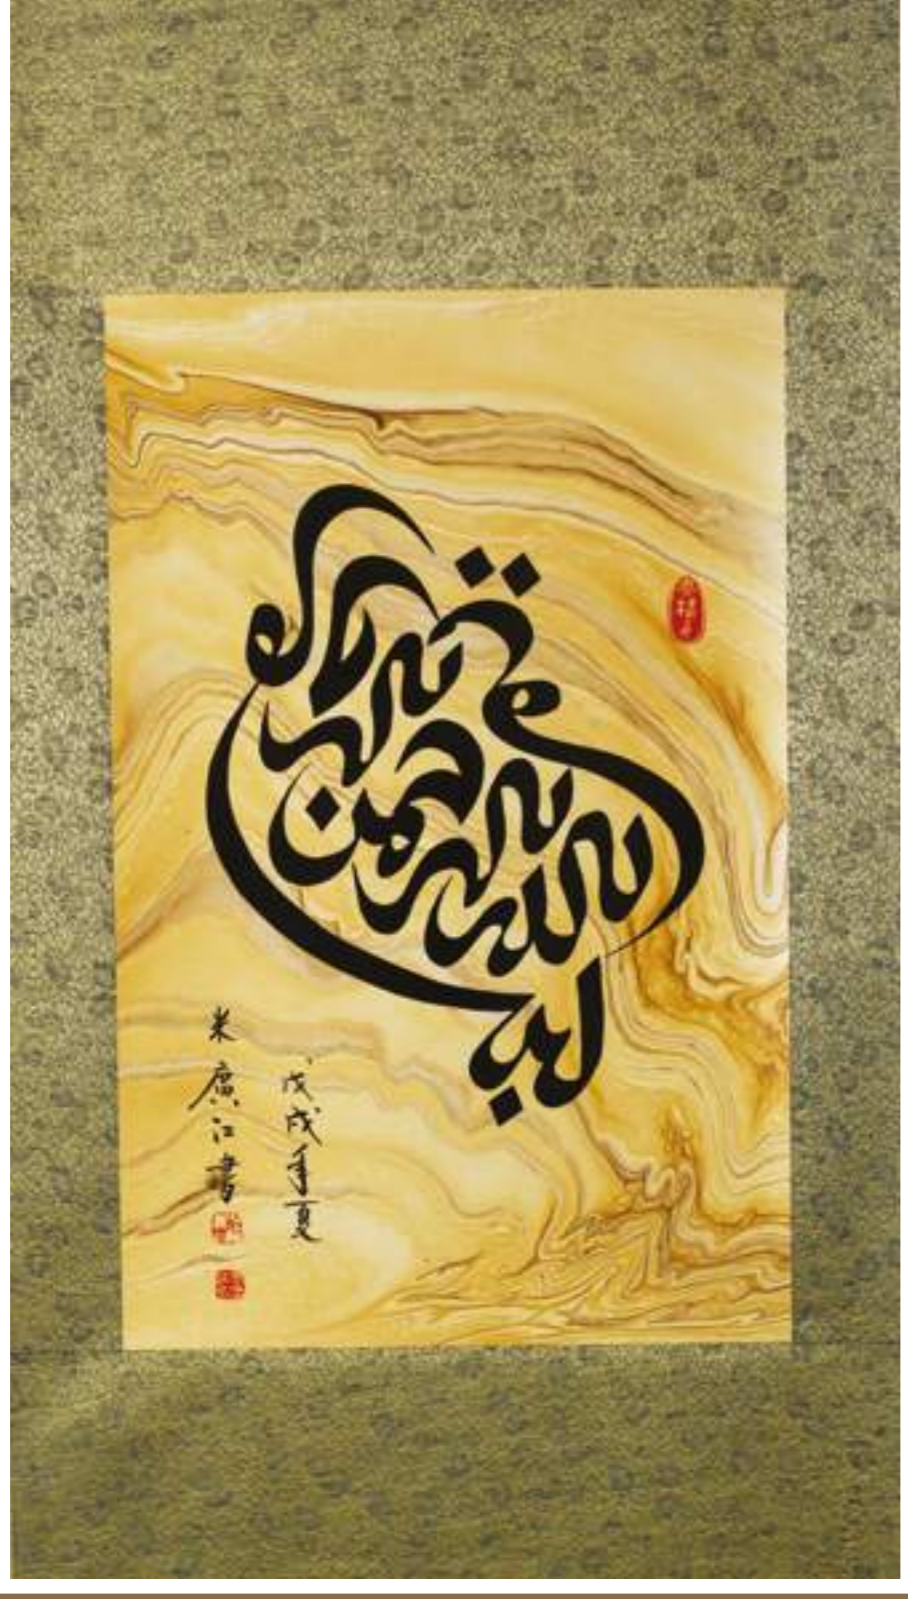 بسم الله الرحمن الرحيم
戊戌年夏
米廣江書